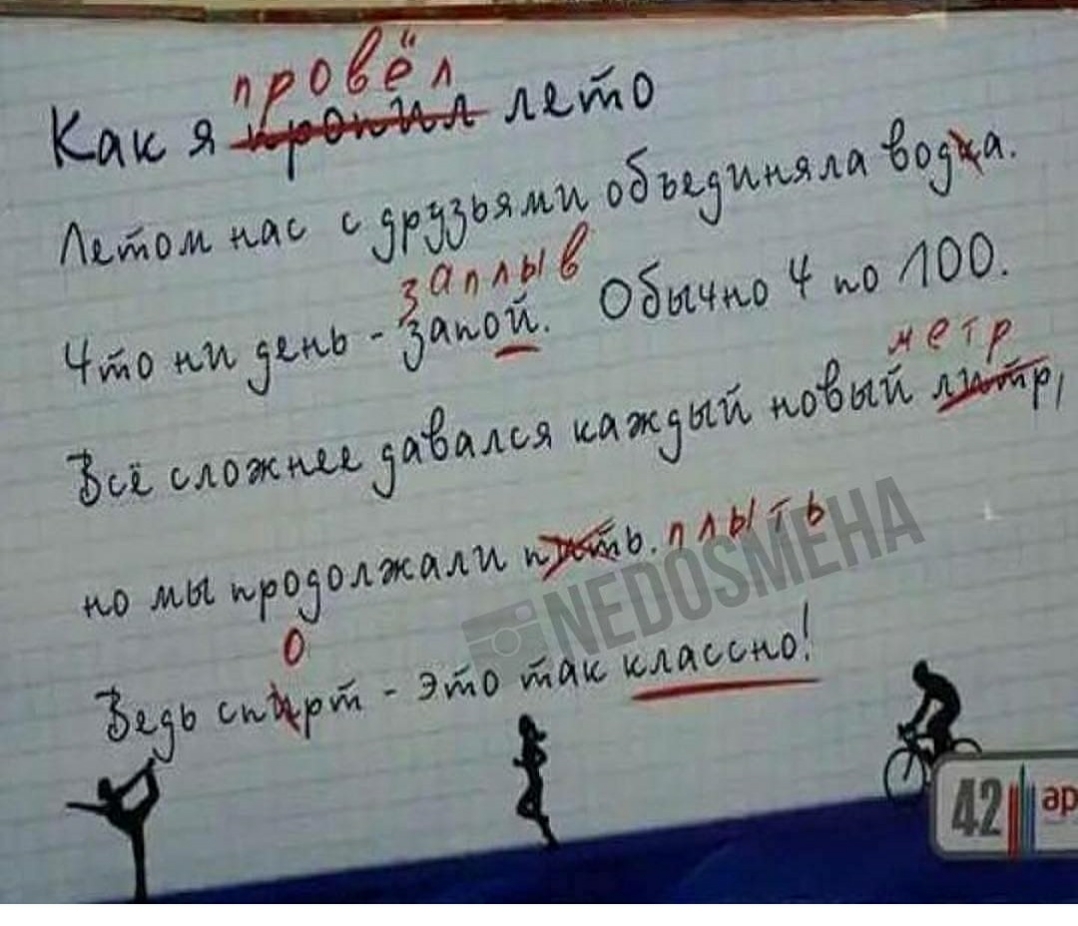 провёл
Как я пропил лето
Летом нас с друзьями объединяла водка.
заплыв
Что ни день - запой. Обычно 4 по 100.
метр
Всё сложнее давался каждый новый литр,
но мы продолжали пить. плыть
NEDOSMEHA
О
Ведь спирт - это так классно!
42 ар